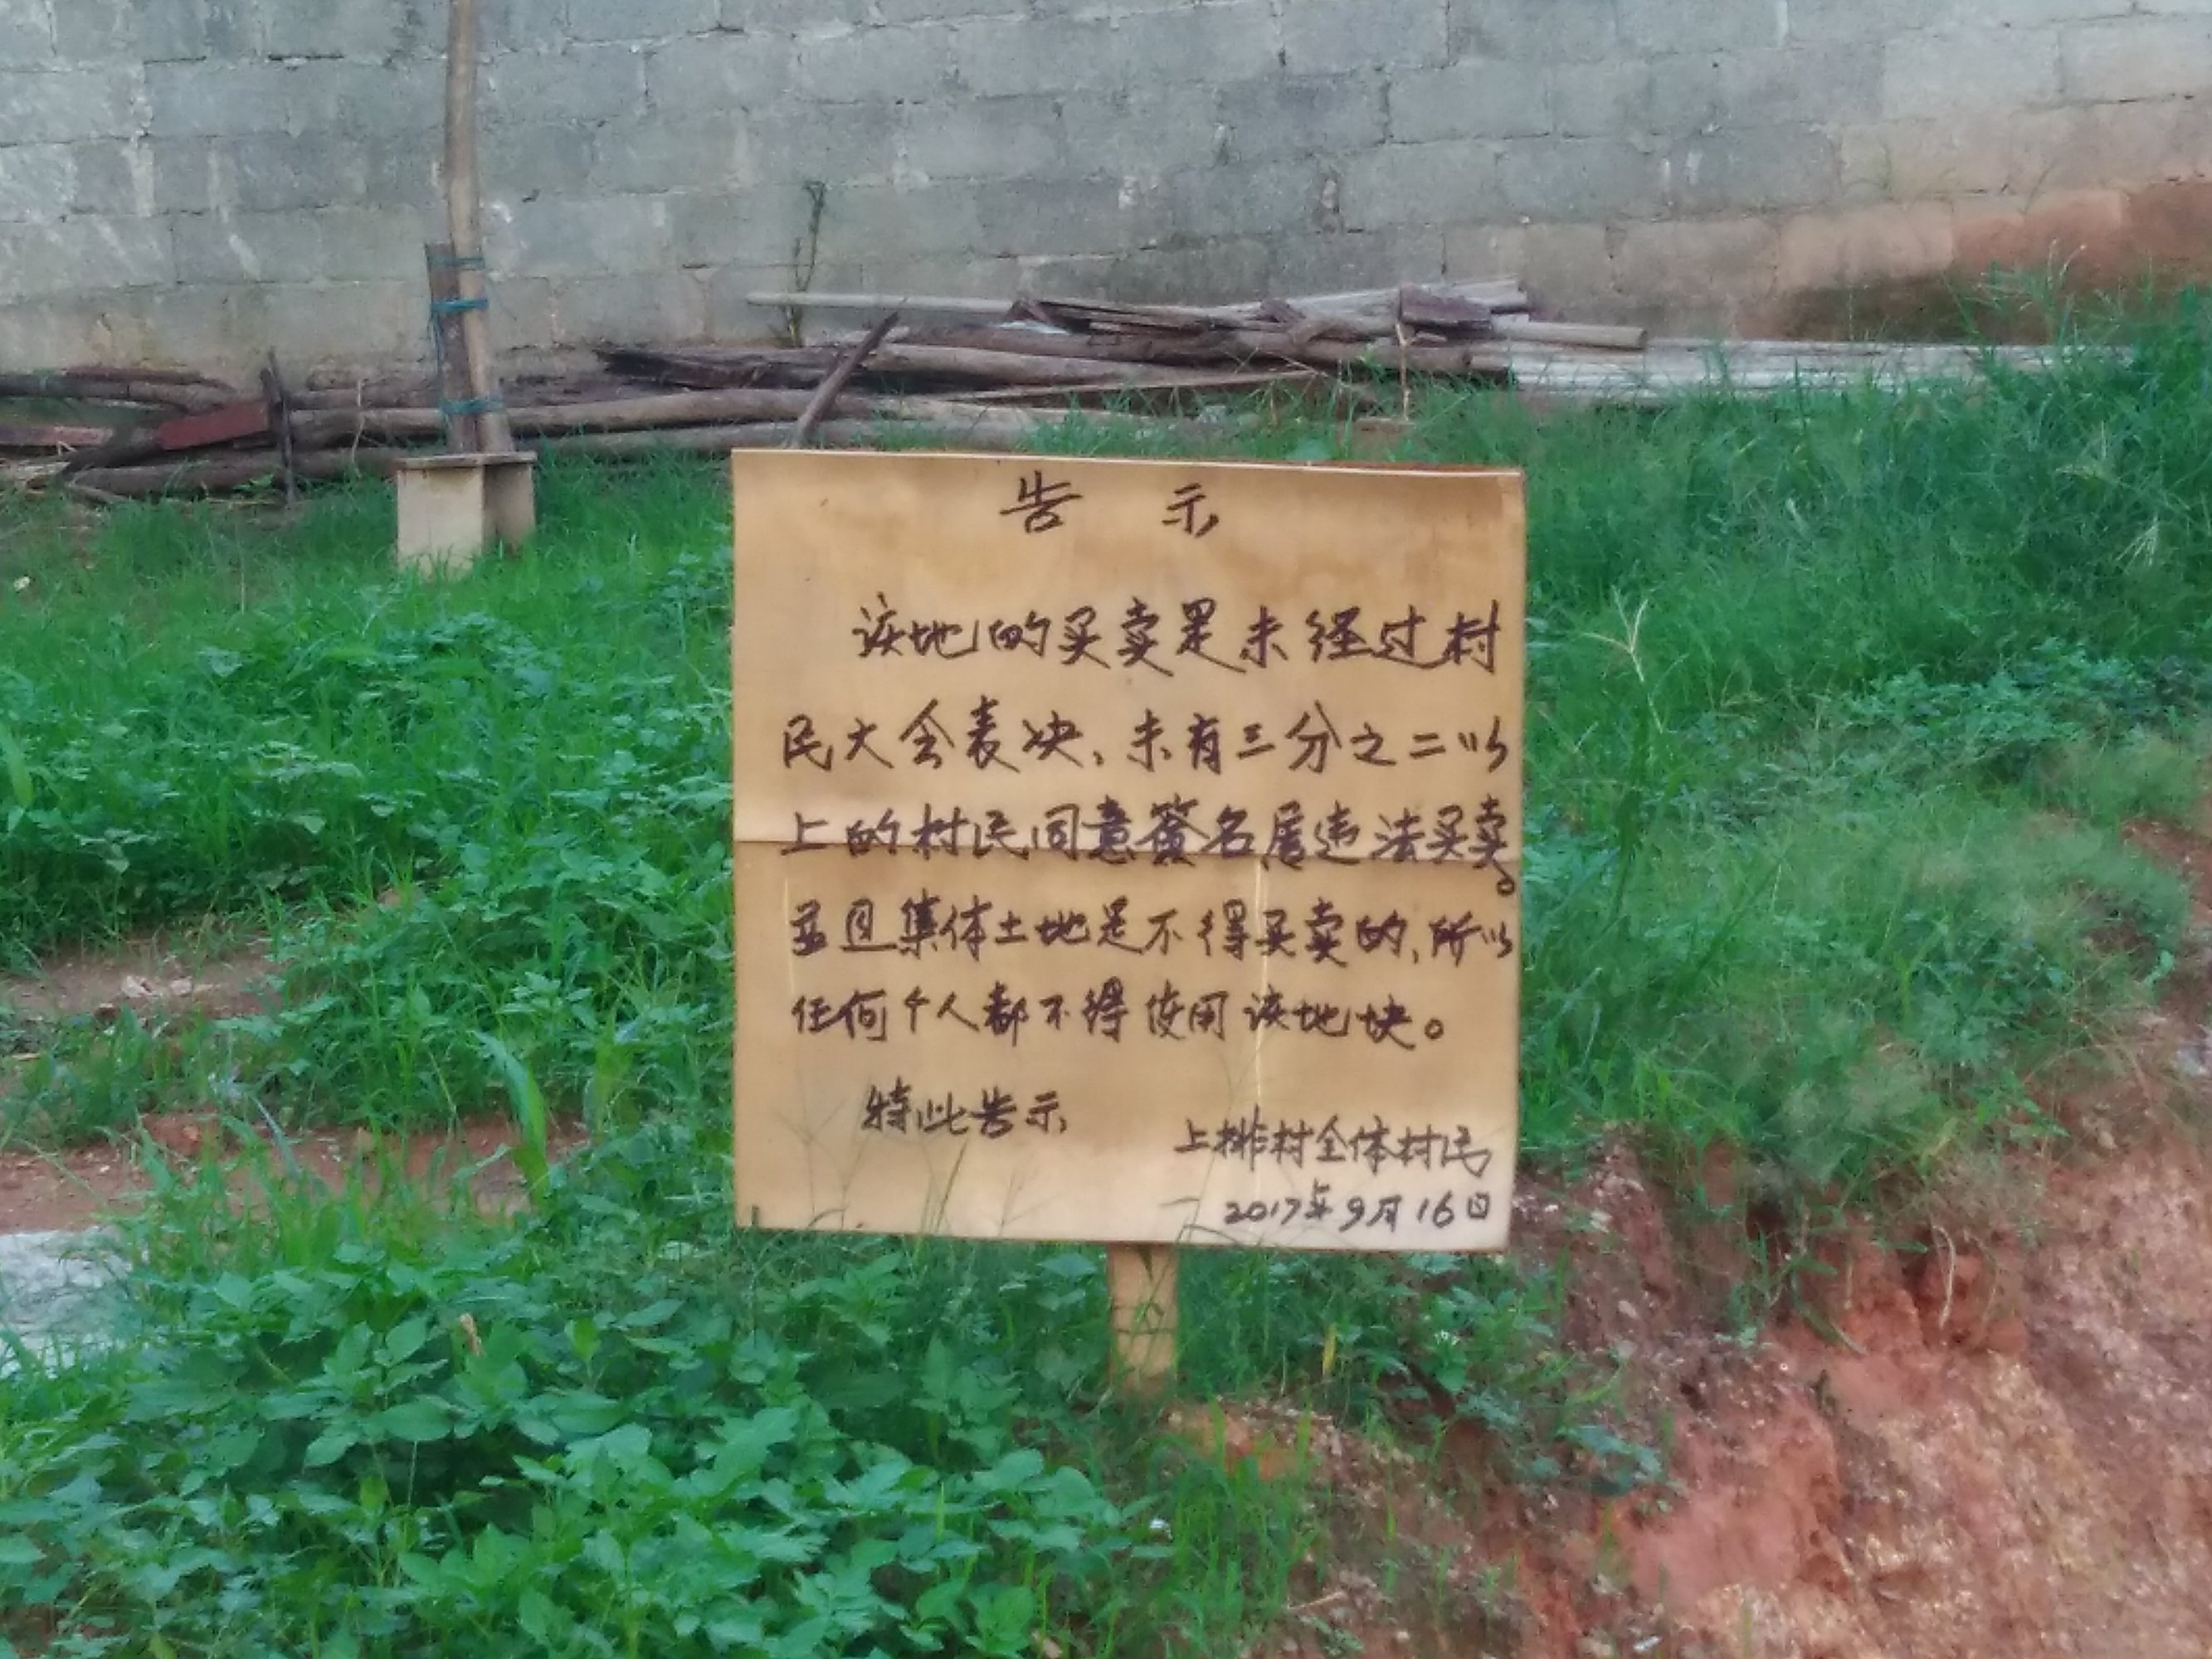 告示
该地的买卖是未经过村
民大会表决、未有三分之二以
上的村民同意签名属违法买卖。
并且集体土地是不得买卖的,所以
任何个人都不得使用该地块。
特此告示
上排村全体村民
2017年9月16日